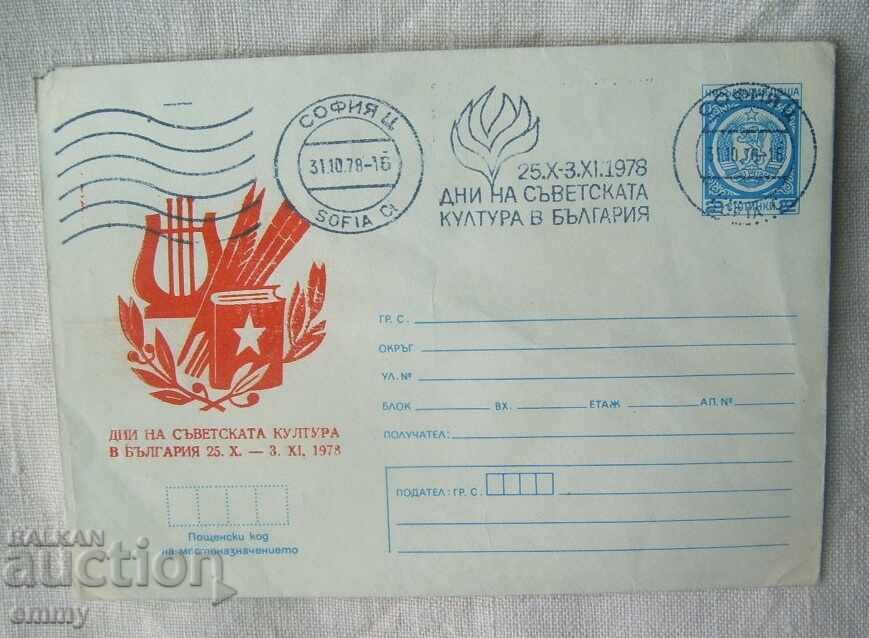 СОФИЯ Ц.
31.10.78-16
SOFIA C
25.X-3.XI.1978
ДНИ НА СЪВЕТСКАТА
КУЛТУРА В БЪЛГАРИЯ
СОФИЯ Ц.
10.78-16
СТОТИНКИ
ГР. С.
ОКРЪГ
УЛ. №
БЛОК ВХ. ЕТАЖ АП. №
ПОЛУЧАТЕЛ:
ПОДАТЕЛ: ГР. С.
ДНИ НА СЪВЕТСКАТА КУЛТУРА
В БЪЛГАРИЯ 25. X. — 3. XI. 1978
Пощенски код
на местоназначението
BALKAN
auction
emmy